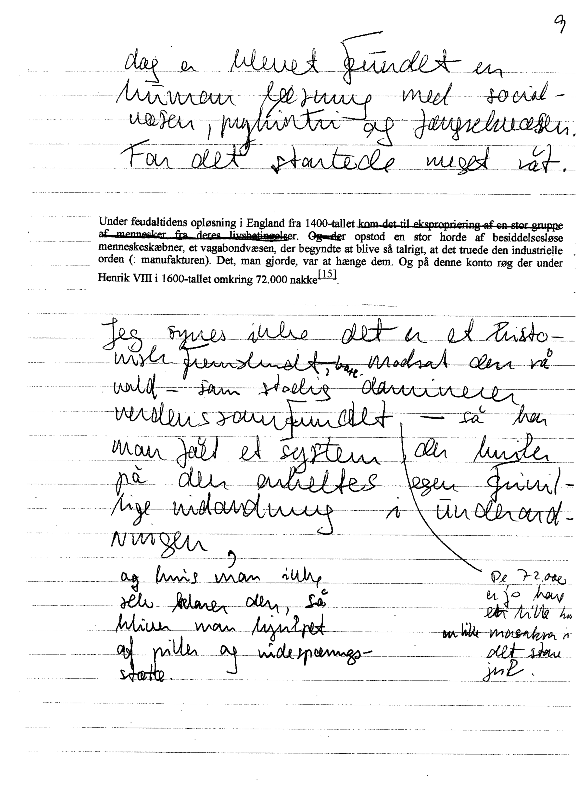 9
dag er blevet fundet en
human løsning med social-
væsen, psykiatri og fængselsvæsen.
For det startede meget råt.
Under feudaltidens opløsning i England fra 1400-tallet kom det til ekspropriering af en stor gruppe
af mennesker fra deres livsbetingelser. Og der opstod en stor horde af besiddelsesløse
menneskeskæbner, et vagabondvæsen, der begyndte at blive så talrigt, at det truede den industrielle
orden (: manufakturen). Det, man gjorde, var at hænge dem. Og på denne konto røg der under
Henrik VIII i 1600-tallet omkring 72,000 nakke[15].
Jeg synes ikke det er et histo-
risk fremskridt, bare modsat den rå
vold – som stadig dominerer
verdenssamfundet, – så har
man fået et system, der hviler
på den enkeltes egen
lige indordning i underord-
ningen,
og hvis man ikke
selv klarer den, så
bliver man hjulpet
af piller og
støtte.
De 72.000
er jo bare
en lille
det store